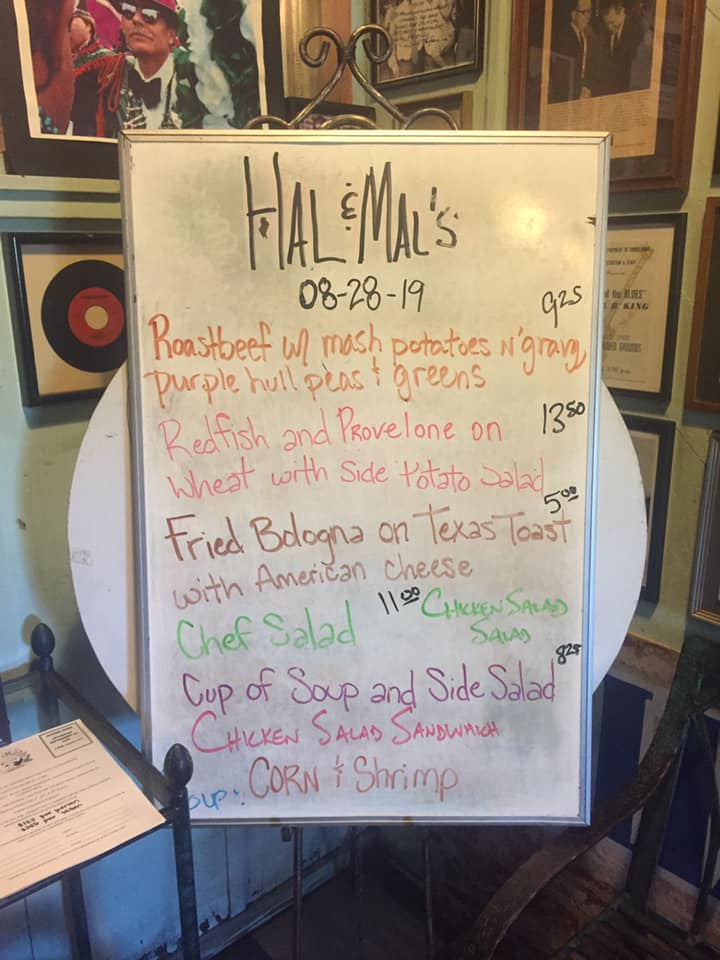 HAL & MAL'S
08-28-19
9 25
Roastbeef w/ mash potatoes N' gravy,
purple hull peas & greens
Redfish and Provelone on 13 50
Wheat with Side Potato Salad
5 00
Fried Bologna on Texas Toast
with American cheese
Chef Salad 11 00 CHICKEN SALAD
SALAD
8 25
Cup of Soup and Side Salad
CHICKEN SALAD SANDWHICH
oup: CORN & Shrimp
of the BLUES"
KING